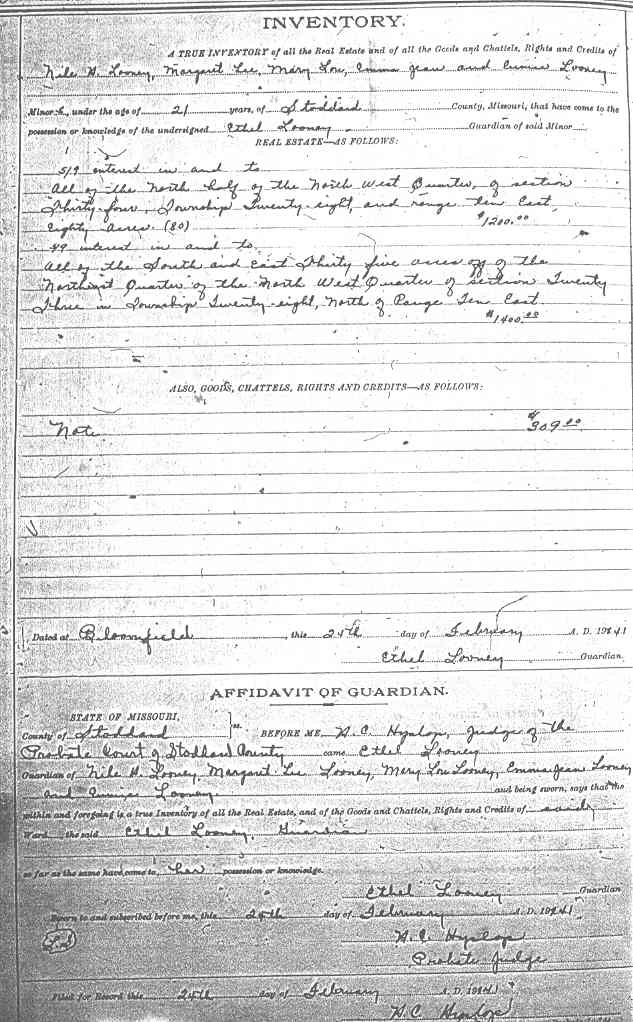 INVENTORY.
A TRUE INVENTORY of all the Real Estate and of all the Goods and Chattels, Rights and Credits of
Nile H. Looney, Margaret Lee, Mary Lou, Emma Jean and Looney
Minors, under the age of 21 years, of Stoddard County, Missouri, that have come to the
possession or knowledge of the undersigned Ethel Looney Guardian of said Minor
REAL ESTATE—AS FOLLOWS:
5/9 interest in and to
All of the North half of the North West Quarter, of section
Thirty four, Township Twenty eight, and range ten East,
Eighty acres (80) $1200.00
interest in and to
All of the South and East Thirty five acres off of the
Northeast Quarter of the North West Quarter of section Twenty
Three in Township Twenty-eight, North of Range Ten East
$1400.00
ALSO, GOODS, CHATTELS, RIGHTS AND CREDITS—AS FOLLOWS:
Note $309.00
Dated at Bloomfield, this 24th day of February A. D. 1941
Ethel Looney Guardian.
AFFIDAVIT OF GUARDIAN.
STATE OF MISSOURI,
County of Stoddard ss. BEFORE ME, H. C. Hyslop, Judge of the
Probate Court of Stoddard County came Ethel Looney
Guardian of Nile H. Looney, Margaret Lee Looney, Mary Lou Looney, Emma Jean Looney
and Looney and being sworn, says that the
within and foregoing is a true Inventory of all the Real Estate, and of the Goods and Chattels, Rights and Credits of said
Ward the said Ethel Looney, Guardian
so far as the same have come to her possession or knowledge.
Ethel Looney Guardian
Sworn to and subscribed before me, this 24th day of February A. D. 1941
(L.S) H. C. Hyslop
Probate Judge
Filed for Record this 24th day of February A. D. 1941
H. C. Hyslop